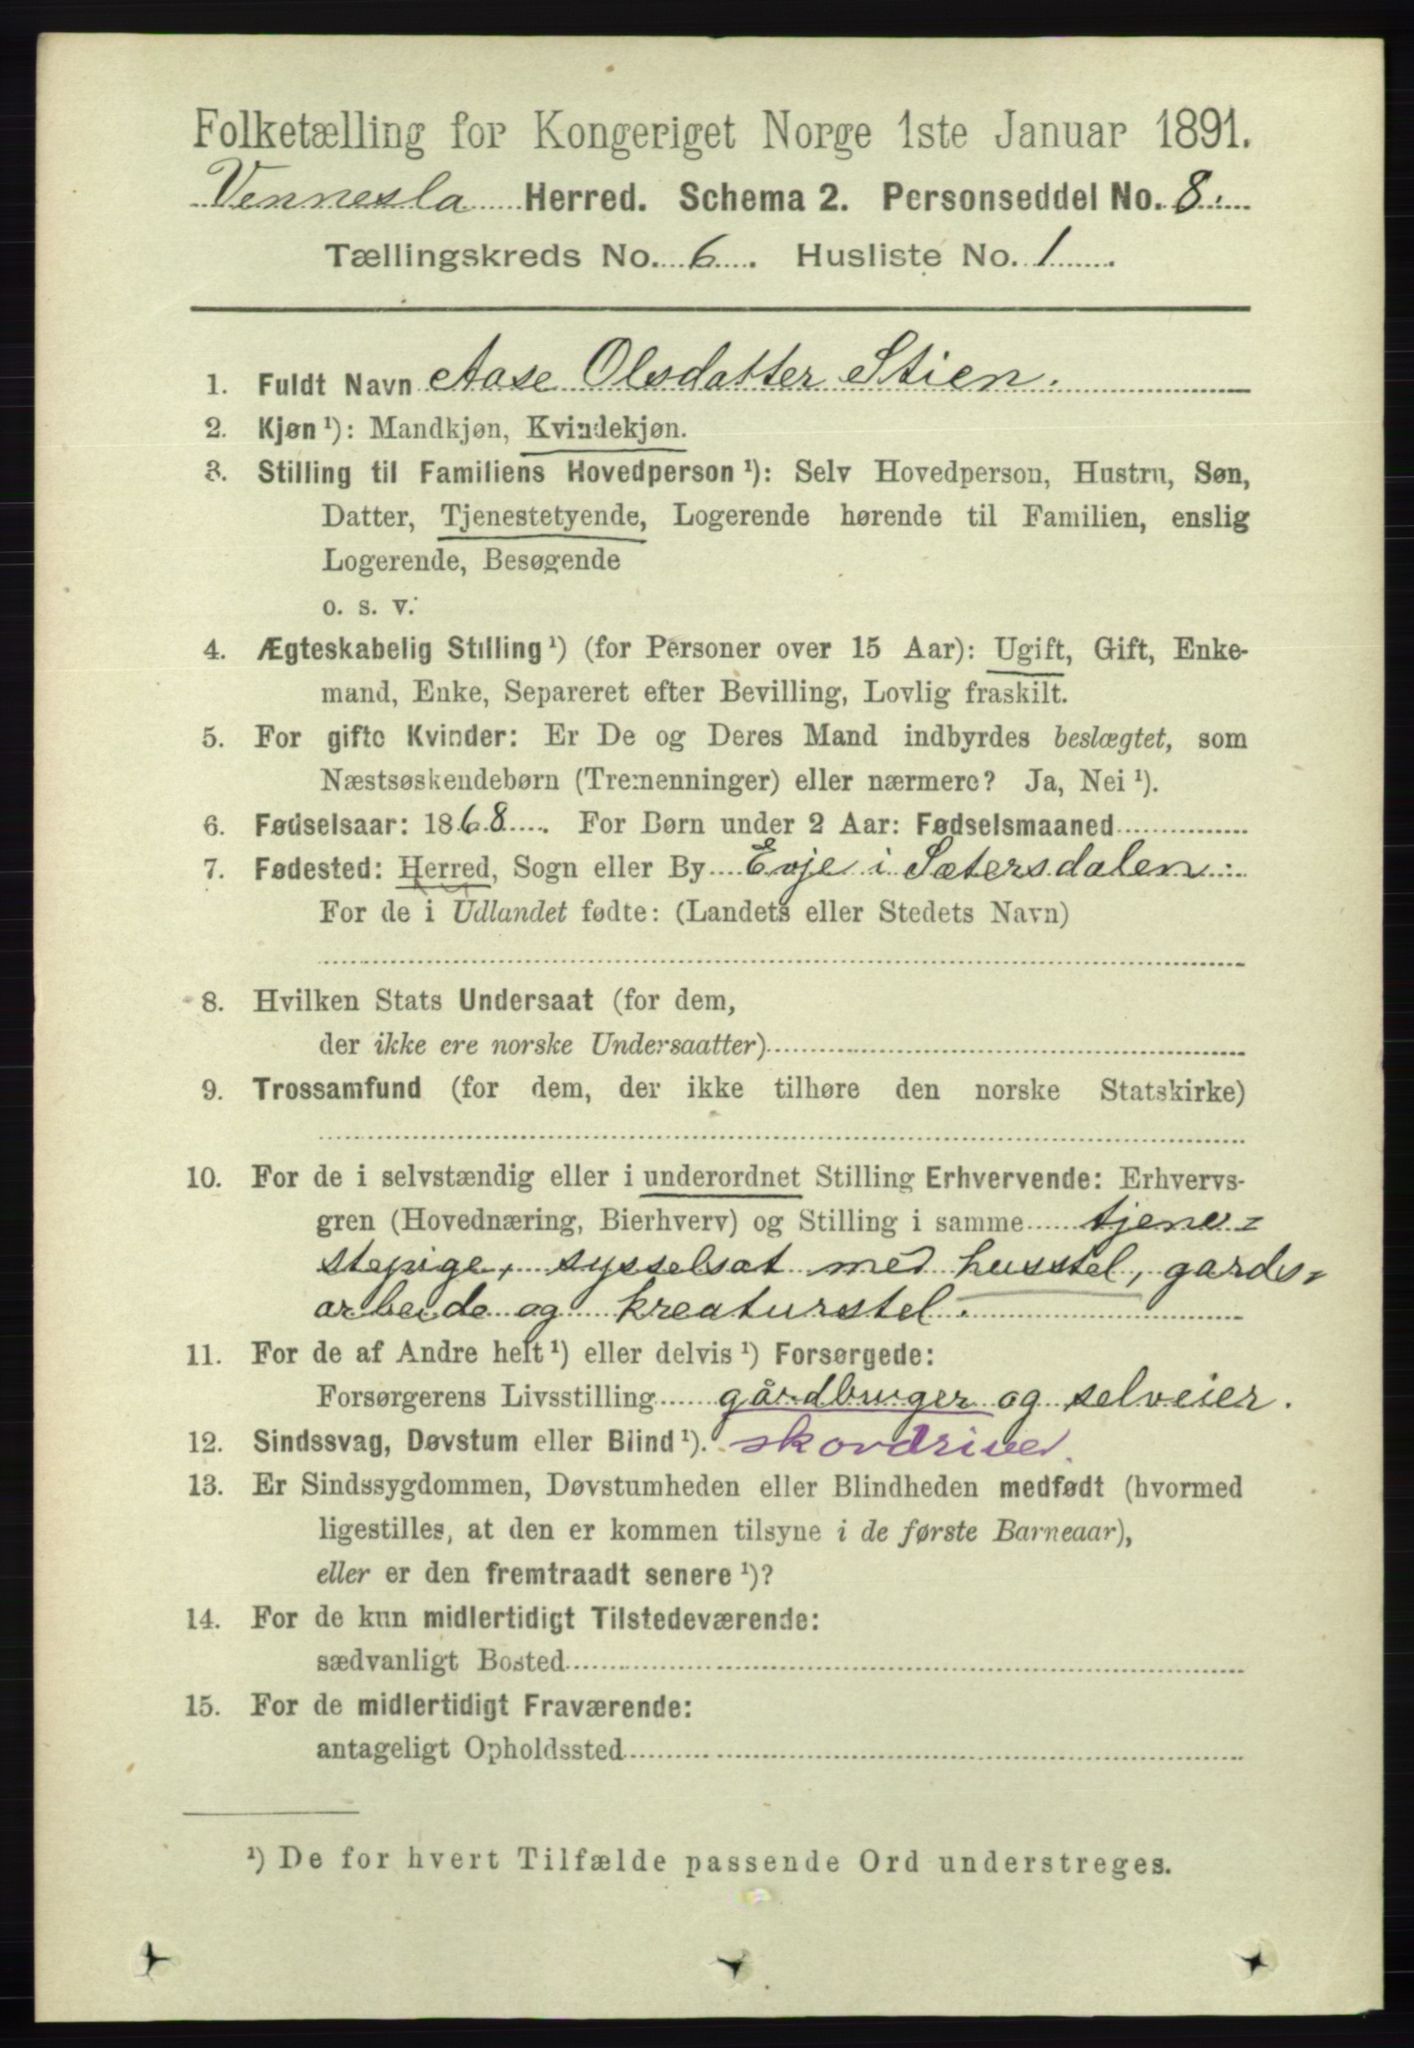 Folketælling for Kongeriget Norge 1ste Januar 1891.
Vennesla Herred. Schema 2. Personseddel No. 8.
Tællingskreds No. 6. Husliste No. 1.
1. Fuldt Navn Aase Olsdatter Stien.
2. Kjøn ¹): Mandkjøn, Kvindekjøn.
3. Stilling til Familiens Hovedperson ¹): Selv Hovedperson, Hustru, Søn,
Datter, Tjenestetyende, Logerende hørende til Familien, enslig
Logerende, Besøgende
o. s. v.
4. Ægteskabelig Stilling ¹) (for Personer over 15 Aar): Ugift, Gift, Enke-
mand, Enke, Separeret efter Bevilling, Lovlig fraskilt.
5. For gifte Kvinder: Er De og Deres Mand indbyrdes beslægtet, som
Næstsøskendebørn (Tremenninger) eller nærmere? Ja, Nei ¹).
6. Fødselsaar: 1868. For Børn under 2 Aar: Fødselsmaaned
7. Fødested: Herred, Sogn eller By Evje i Sætersdalen.
For de i Udlandet fødte: (Landets eller Stedets Navn)
8. Hvilken Stats Undersaat (for dem,
der ikke ere norske Undersaatter)
9. Trossamfund (for dem, der ikke tilhøre den norske Statskirke)
10. For de i selvstændig eller i underordnet Stilling Erhvervende: Erhvervs-
gren (Hovednæring, Bierhverv) og Stilling i samme tjene=
stepige, sysselsat med husstel, gards=
arbeide og kreaturstel.
11. For de af Andre helt ¹) eller delvis ¹) Forsørgede:
Forsørgerens Livsstilling gårdbruger og selveier.
12. Sindssvag, Døvstum eller Blind ¹). skovdriver
13. Er Sindssygdommen, Døvstumheden eller Blindheden medfødt (hvormed
ligestilles, at den er kommen tilsyne i de første Barneaar),
eller er den fremtraadt senere ¹)?
14. For de kun midlertidigt Tilstedeværende:
sædvanligt Bosted
15. For de midlertidigt Fraværende:
antageligt Opholdssted
¹) De for hvert Tilfælde passende Ord understreges.